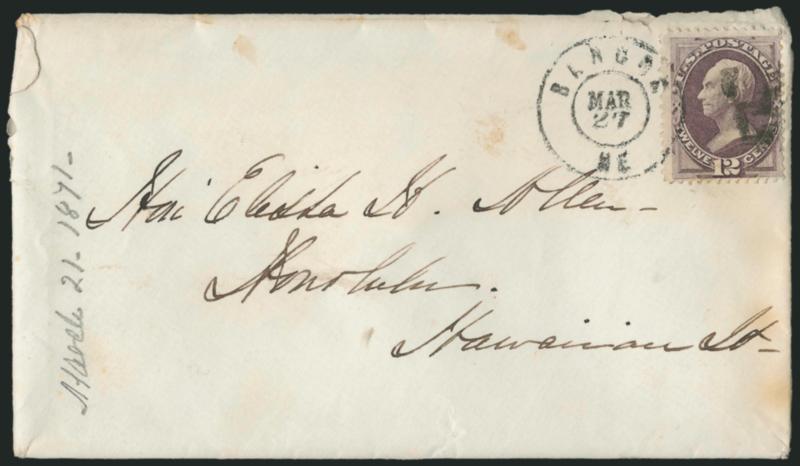 BANGOR
MAR
27
ME
U.S. POSTAGE
TWELVE 12 CENTS
Hon Elisha H. Allen-
Honolulu.
Hawaiian Is-
March 21- 1871-